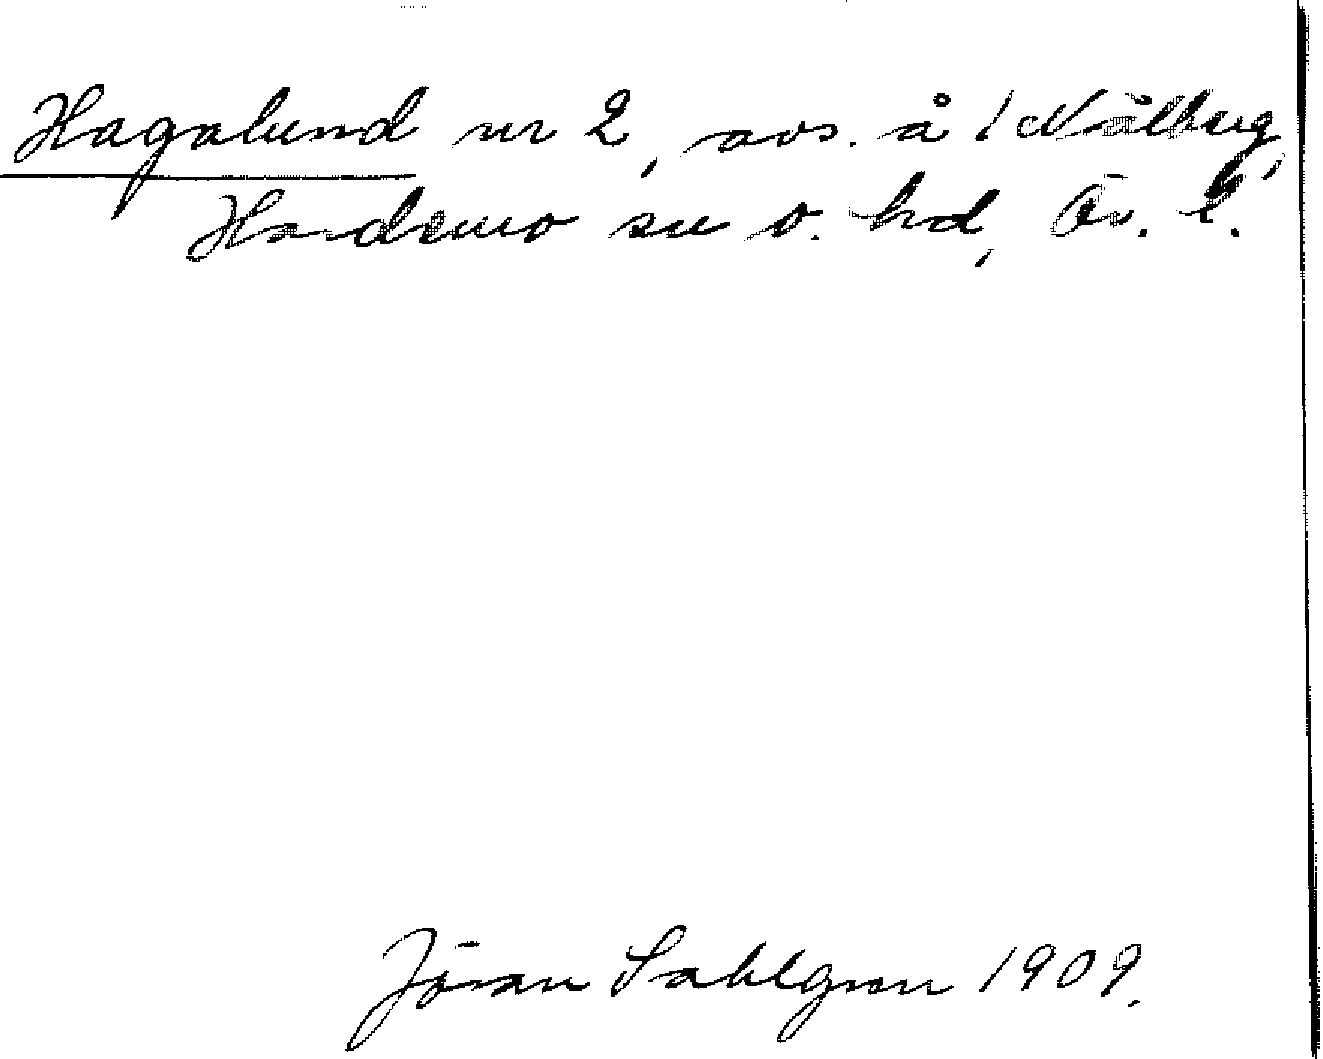 Hagalund nr 2, avs. å 1 Nålberg,
Hardemo sn o. hd, Ör. l.
Jöran Sahlgren 1909.